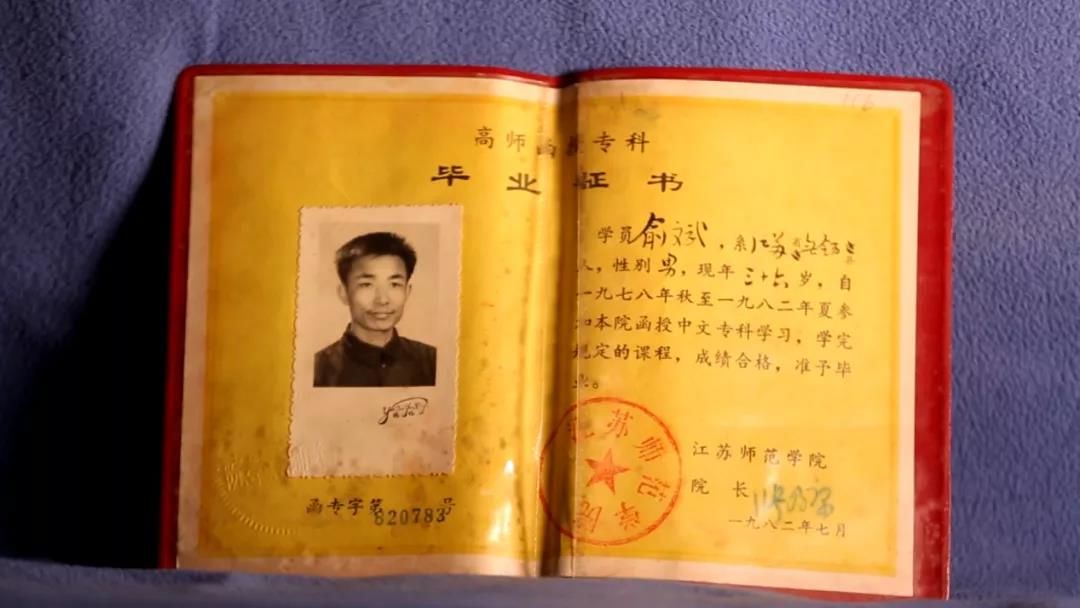 高师函授专科
毕业证书
学员俞文斌，系江苏省无锡县
人，性别男，现年三十六岁，自
一九七八年秋至一九八二年夏参
加本院函授中文专科学习，学完
规定的课程，成绩合格，准予毕
业。
江苏师范学院
江苏师范学院
院长
一九八二年七月
函专字第820783号